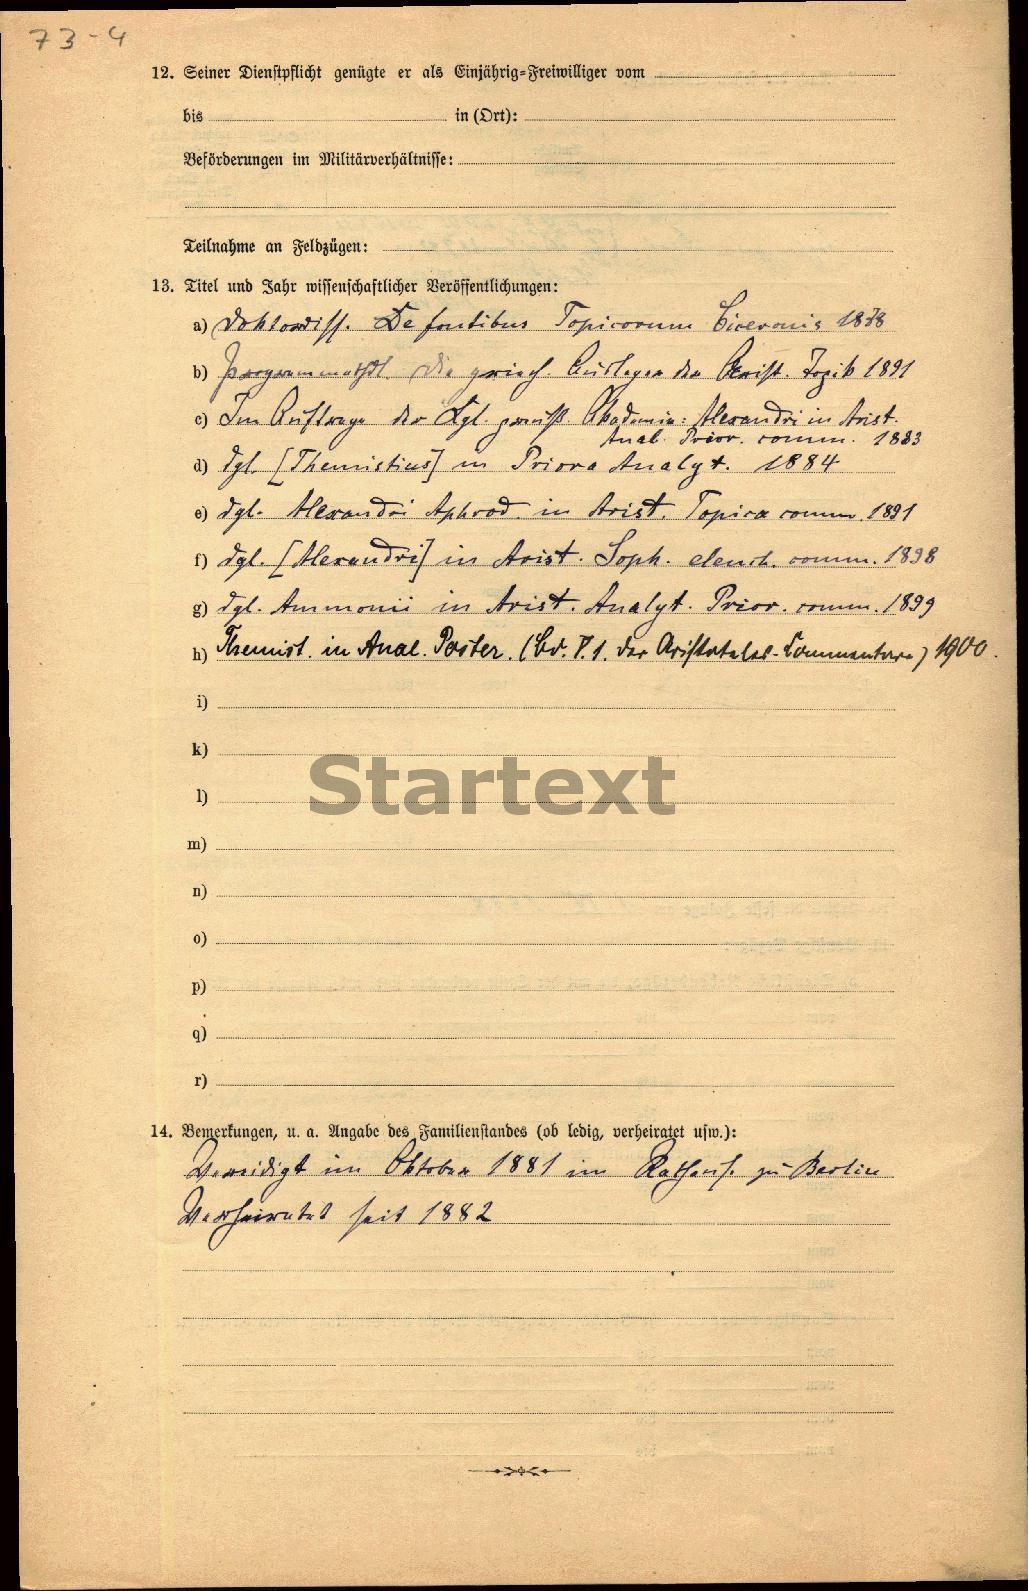 73-4
12. Seiner Dienstpflicht genügte er als Einjährig-Freiwilliger vom
bis in (Ort):
Beförderungen im Militärverhältnisse:
Teilnahme an Feldzügen:
13. Titel und Jahr wissenschaftlicher Veröffentlichungen:
a) Doktordiss. De fontibus Topicorum Ciceronis 1878
b) Programmabhdl. Die griech. Ausleger der Arist. Topik 1891
c) Im Auftrage der Kgl. preuß. Akademie: Alexandri in Arist.
Anal. Prior. comm. 1883
d) dgl. [Themistius] in Priora Analyt. 1884
e) dgl. Alexandri Aphrod. in Arist. Topica comm. 1891
f) dgl. [Alexandri] in Arist. Soph. elench. comm. 1898
g) dgl. Ammonii in Arist. Analyt. Prior. comm. 1899
h) Themist. in Anal. Poster. (Bd. V.1. der Aristoteles-Commentare) 1900.
i)
k)
Startext
l)
m)
n)
o)
p)
q)
r)
14. Bemerkungen, u. a. Angabe des Familienstandes (ob ledig, verheiratet usw.):
Vereidigt im Oktober 1881 im Rathause zu Berlin
Verheiratet seit 1882